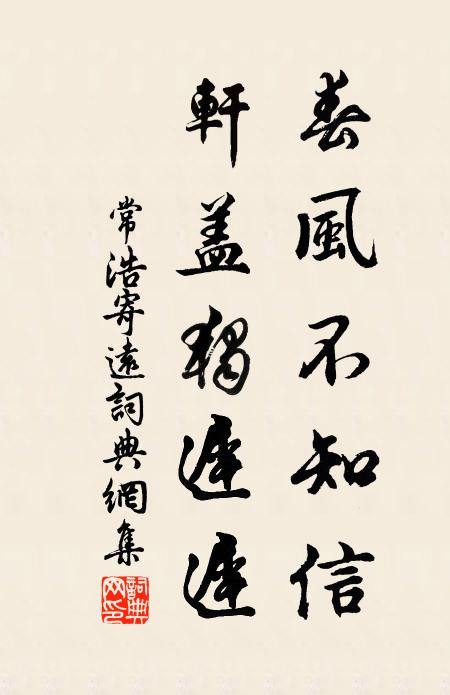 春風不知信
軒盖獨遲遲
常浩寄遠詞典網集
詞典
網印